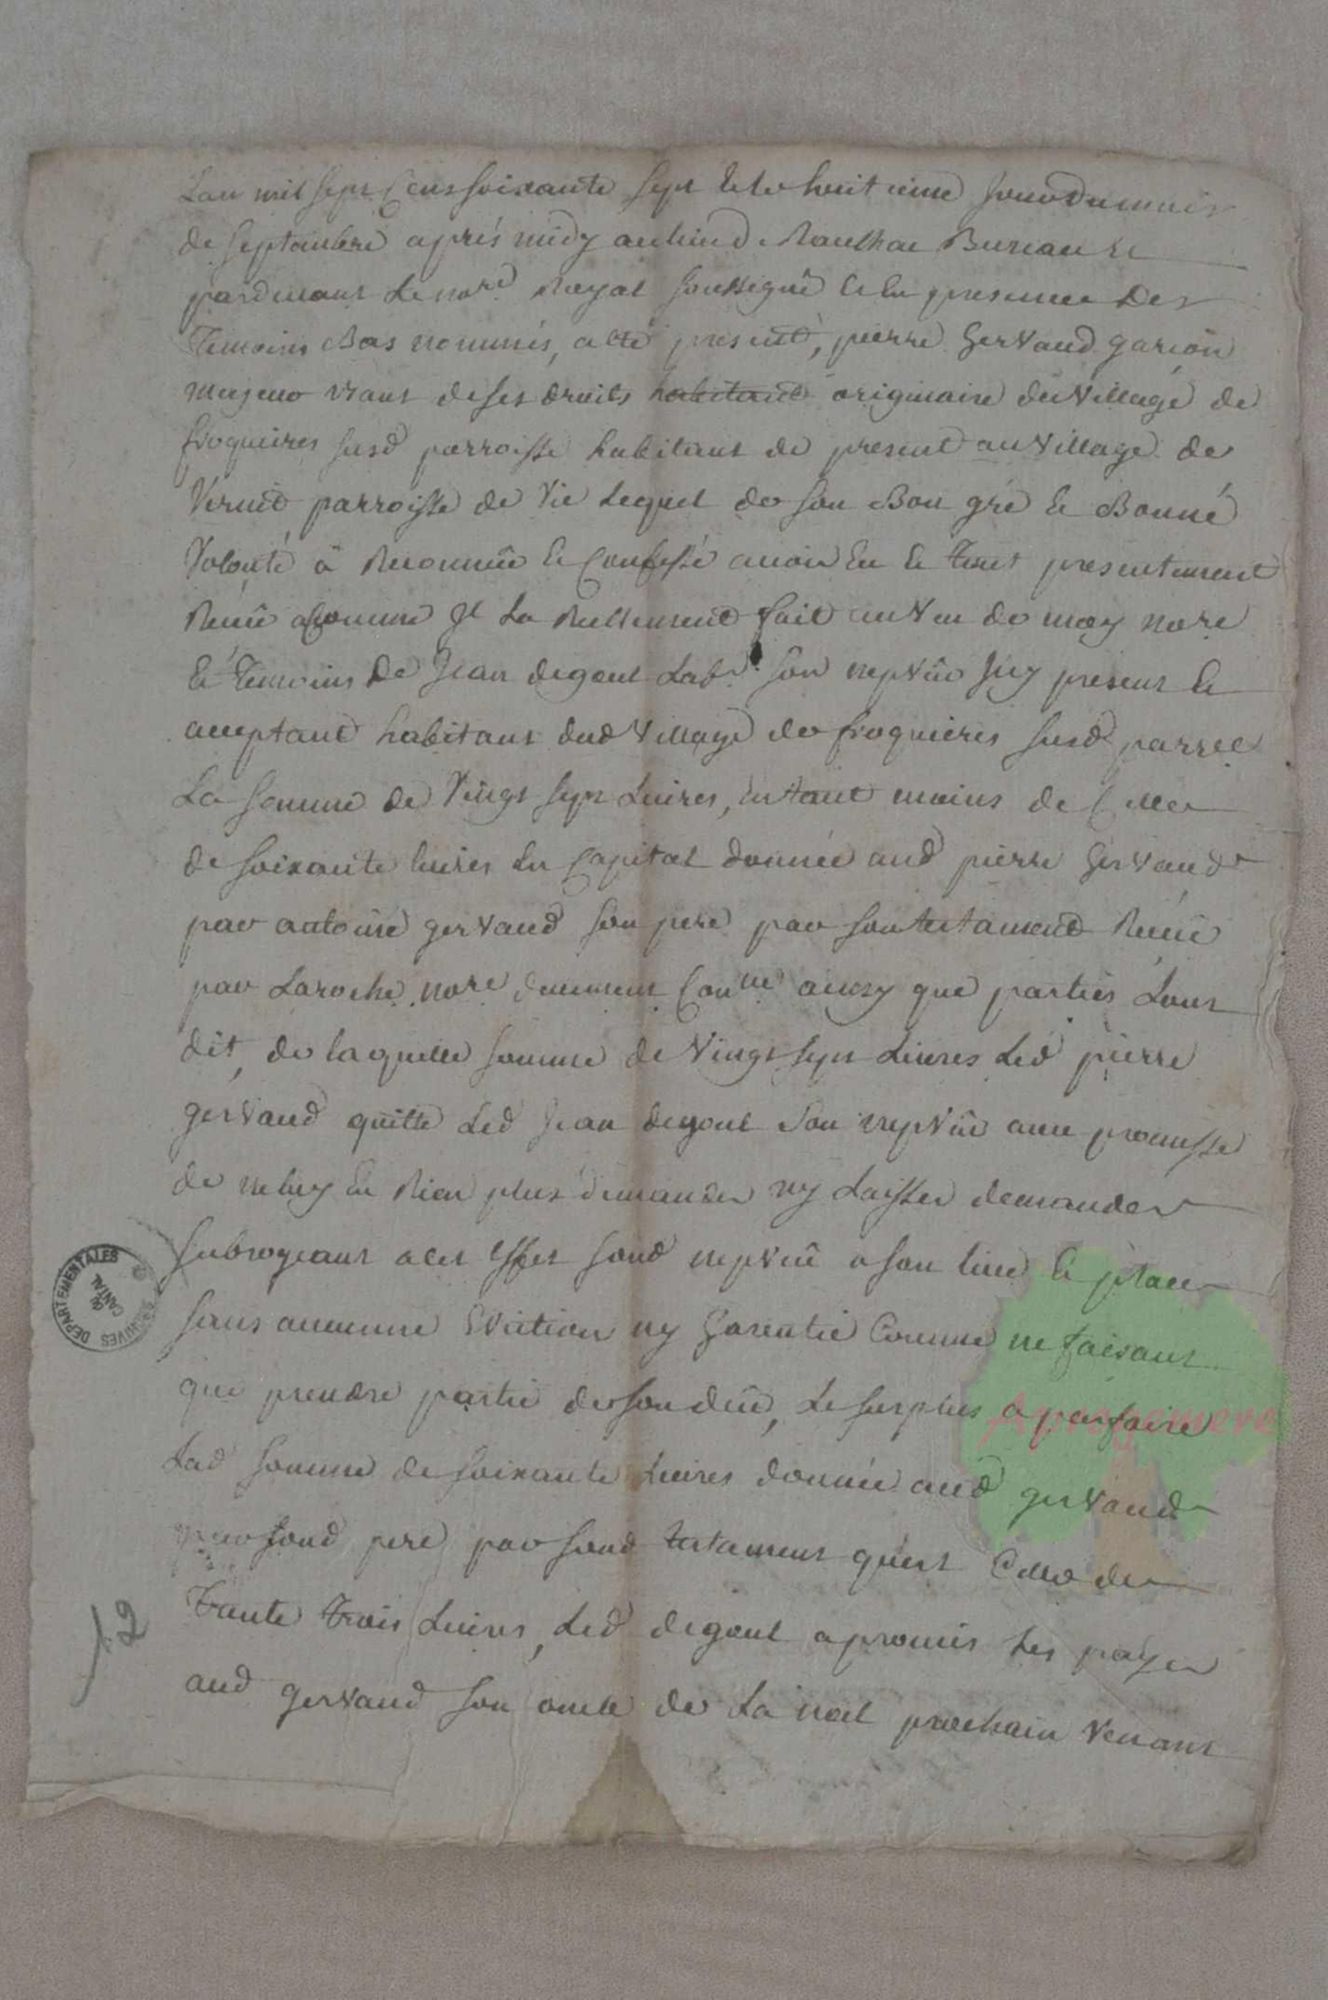 L'an mil sept Cens soixante sept & le huit ieme Jour du mois
de septembre aprés midy au lieu de Raulhac Bureau &
pardevant Le nore Royal soussigné & En presence des
Temoins Bas nommés, a eté present, pierre Gervaud garcon
majeur usant de ses droits habitant originaire du Village de
froquieres susd parroisse habitant de present au Village de
Verniд parroisse de Vic Lequel de son Bon gré & Bonne
Volonté a Reconnû & Confessé avoir Eu & tout presentement
Receu comme Il La Rellement fait au Veu de moy nore
& Temoins De Jean degoul Labr son nepvûe Icy present &
acceptant habitant dud Village de froquieres susd parroe
La somme de Vingt sept Livres, En tant moins de Celle
de soixante livres En Capital donnée aud pierre Gervaud
par antoine gervaud son pere par son testament Receu
par Laroche nore duement Conlle ainsy que parties L'ont
dit, de laquelle somme de Vingt sept Livres Led pierre
gervaud quitte Led Jean degoul Son nepvûe avec promesse
de ne luy En Rien plus demander ny Laisser demander
subrogeant a cet Effet sond nepvûe a son lieu & place
sans aucunne Eviction ny Garentie Comme ne faisant
que prendre partie de son dûe, Le surplus a parfaire
Lad somme de soixante Livres donnée aud gervaud
par sond pere par sond testament quest Celle de
Trante Trois Livres, Led degoul a promis Les payer
aud gervaud son oncle de La noel prochain Venant
ARCHIVES DEPARTEMENTALES
DU CANTAL
12
Aprogemere